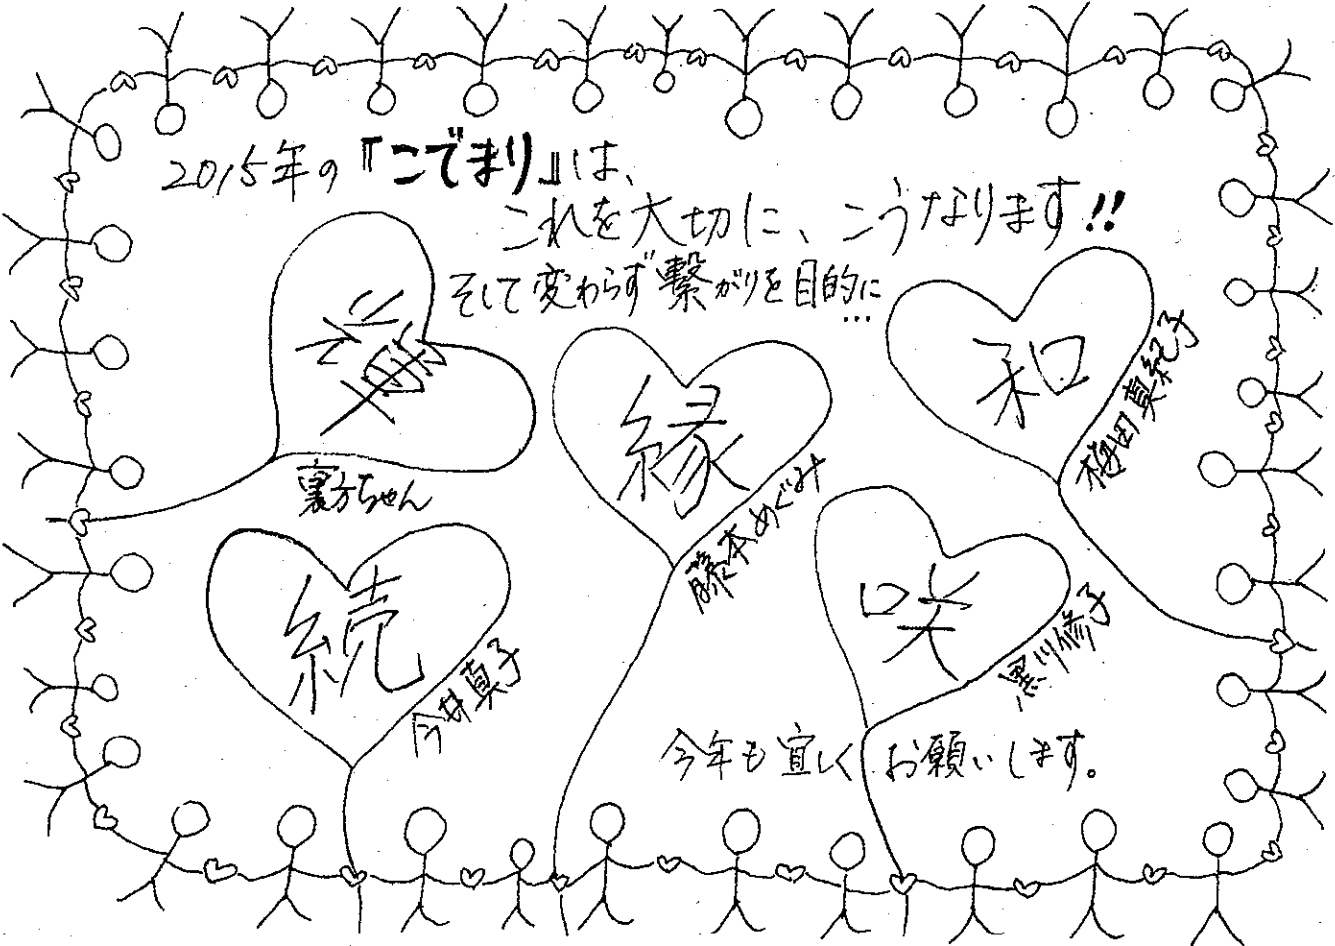 2015年の『こでまり』は、
これを大切に、こうなります!!
そして変わらず繋がりを目的に…
裏方ちゃん
縁
藤本めぐみ
和
梅田真紀子
続
今井真子
咲
川修子
今年も宜しくお願いします。